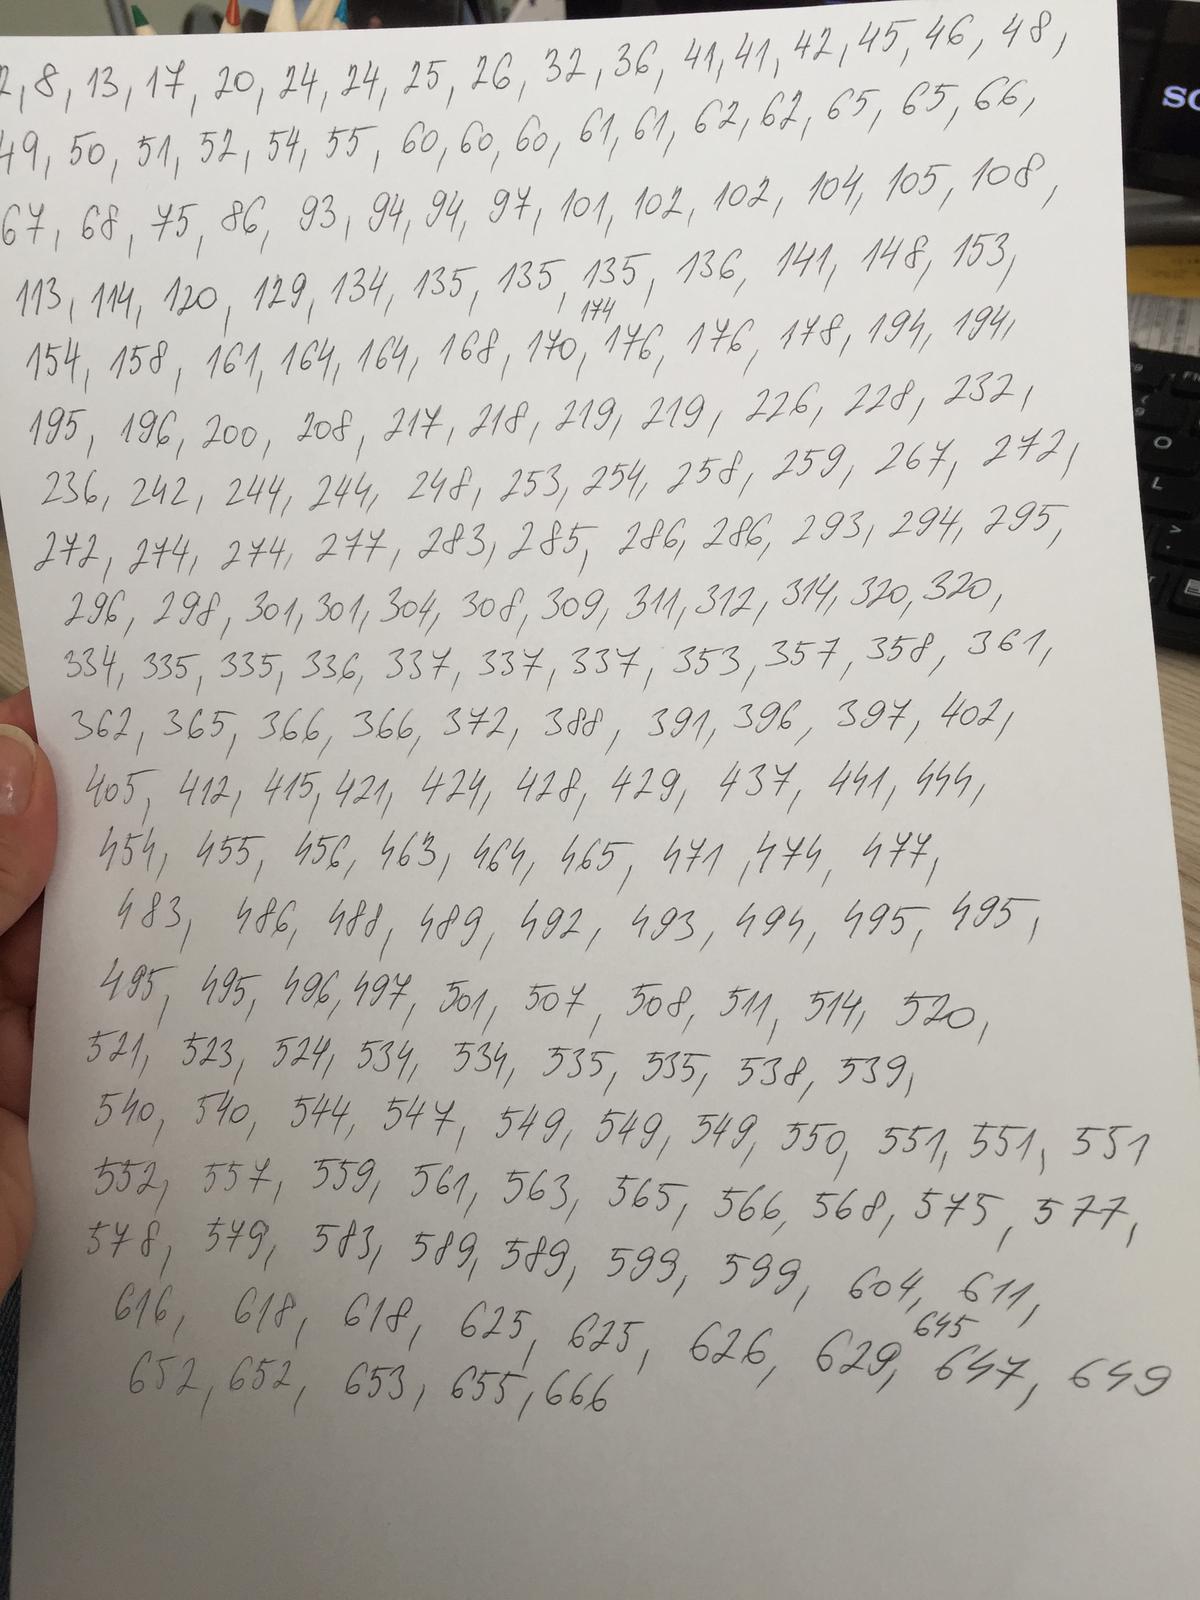 2, 8, 13, 17, 20, 24, 24, 25, 26, 32, 36, 41, 41, 42, 45, 46, 48,
49, 50, 51, 52, 54, 55, 60, 60, 60, 61, 61, 62, 62, 65, 65, 66,
67, 68, 75, 86, 93, 94, 94, 97, 101, 102, 102, 104, 105, 108,
113, 114, 120, 129, 134, 135, 135, 135, 136, 141, 148, 153,
174
154, 158, 161, 164, 164, 168, 170, 176, 176, 178, 194, 194,
195, 196, 200, 208, 217, 218, 219, 219, 226, 228, 232,
236, 242, 244, 244, 248, 253, 254, 258, 259, 267, 272,
272, 274, 274, 277, 283, 285, 286, 286, 293, 294, 295,
296, 298, 301, 301, 304, 308, 309, 311, 312, 314, 320, 320,
334, 335, 335, 336, 337, 337, 337, 353, 357, 358, 361,
362, 365, 366, 366, 372, 388, 391, 396, 397, 402,
405, 412, 415, 421, 424, 428, 429, 437, 441, 444,
454, 455, 456, 463, 464, 465, 471, 474, 477,
483, 486, 488, 489, 492, 493, 494, 495, 495,
495, 495, 496, 497, 501, 507, 508, 511, 514, 520,
521, 523, 524, 534, 534, 535, 535, 538, 539,
540, 540, 544, 547, 549, 549, 549, 550, 551, 551, 551
552, 557, 559, 561, 563, 565, 566, 568, 575, 577,
578, 579, 583, 589, 589, 599, 599, 604, 611,
645
616, 618, 618, 625, 625, 626, 629, 647, 649
652, 652, 653, 655, 666